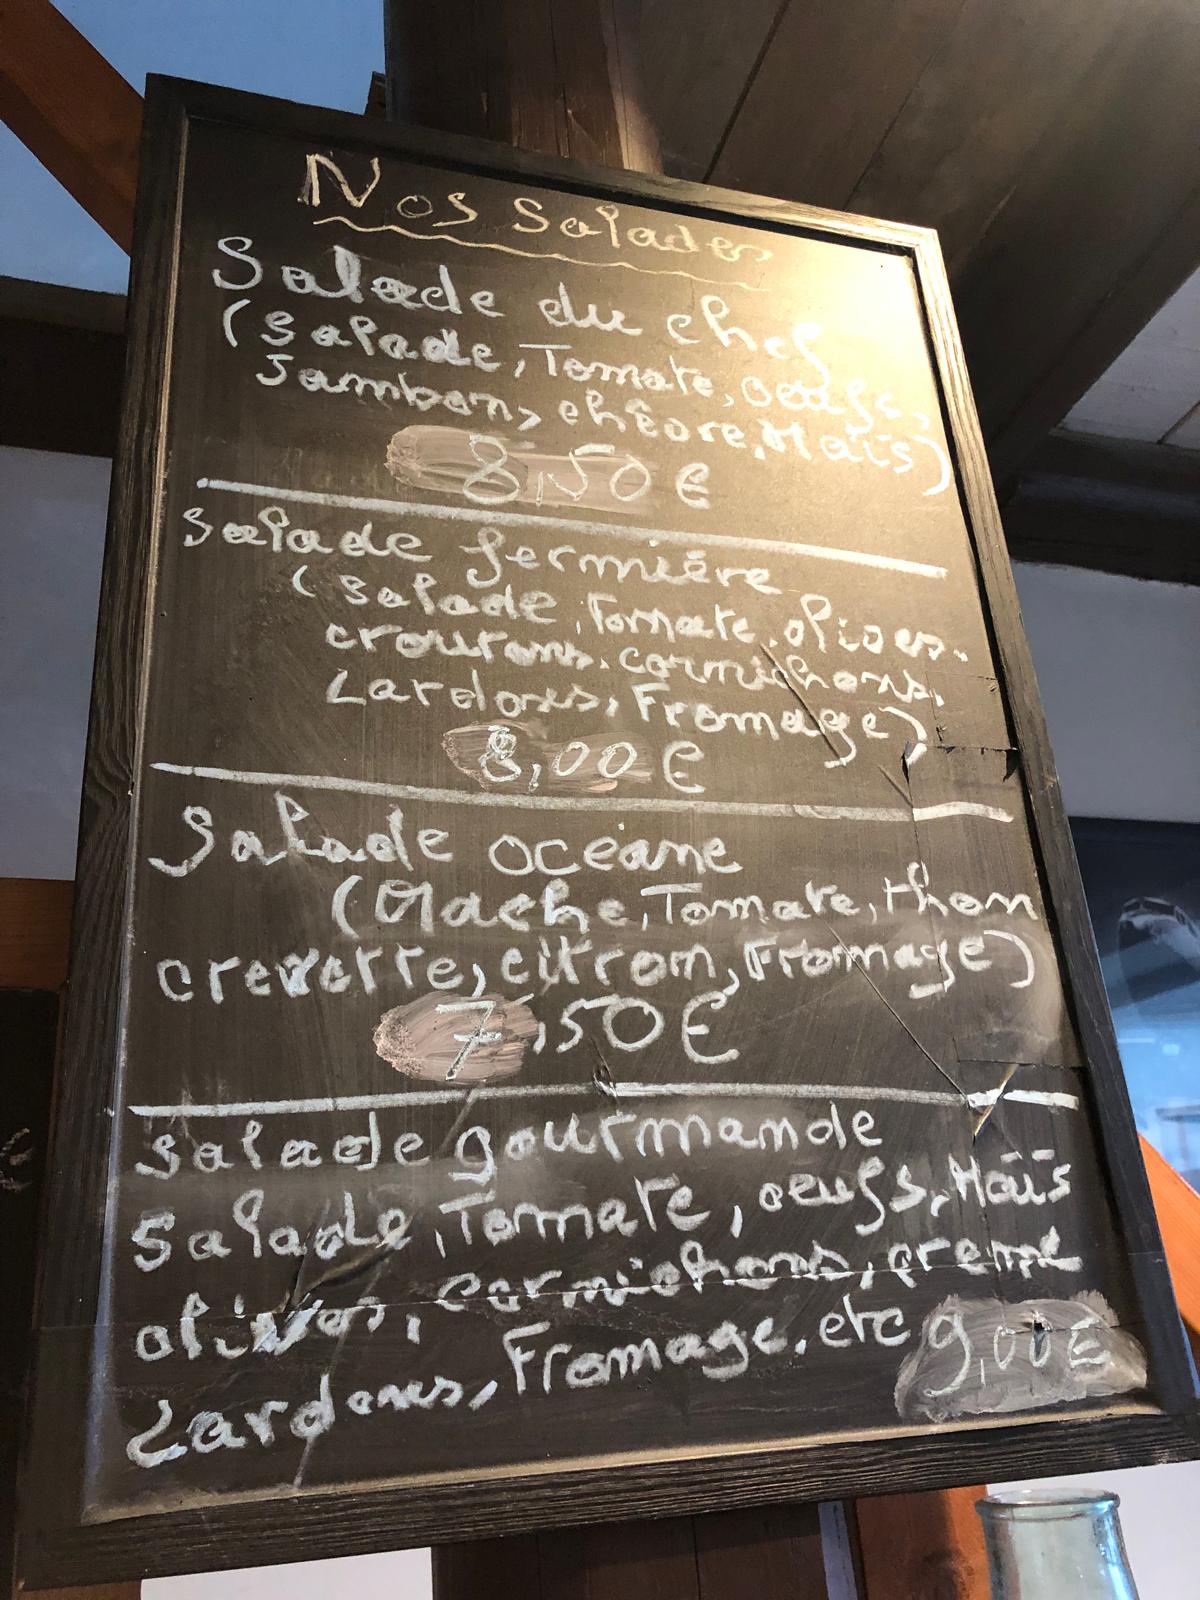 Nos Salades
Salade du chef
(Salade, Tomate, oeufs,
Jambon, chêvre, Maïs)
8,50 €
Salade fermière
(Salade, Tomate, olives.
croutons. cornichons,
Lardons, Fromage)
8,00 €
Salade océane
(Mache, Tomate, thon
crevette, citron, Fromage)
7,50 €
Salade gourmande
Salade, Tomate, oeufs, Maïs
olives, cornichons, creme
Lardons, Fromage, etc 9,00 €